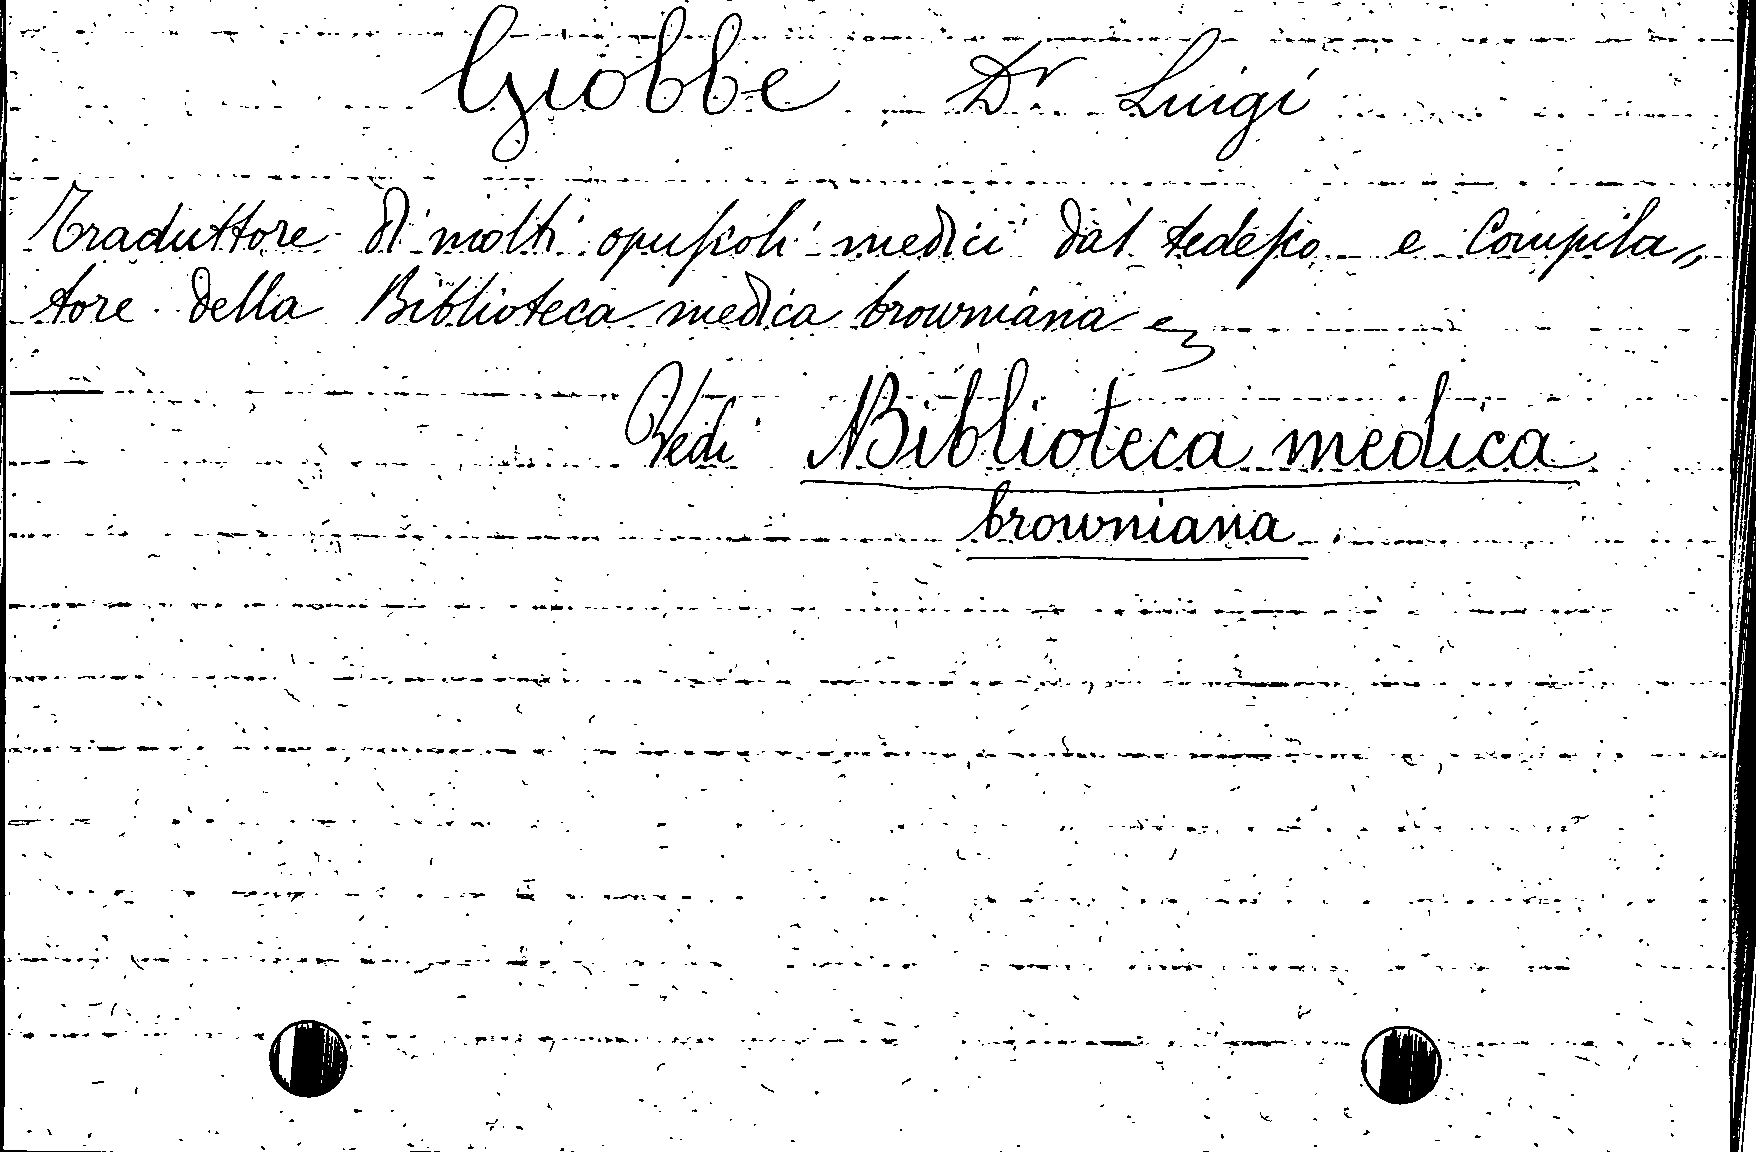 Giobbe Dr. Luigi
Traduttore di molti opuscoli medici dal tedesco e Compila„
tore della Biblioteca medica browniana
Vedi Biblioteca medica
browniana